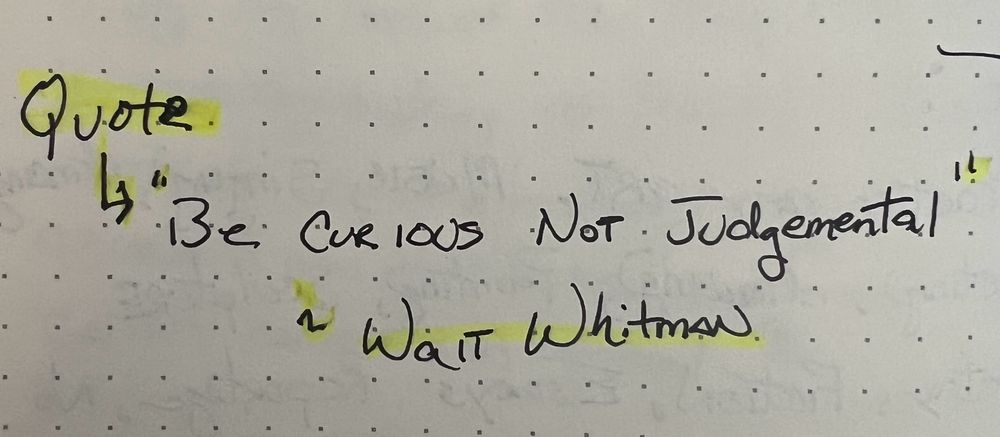 Quote
↳ "Be Curious Not Judgemental"
~ Walt Whitman